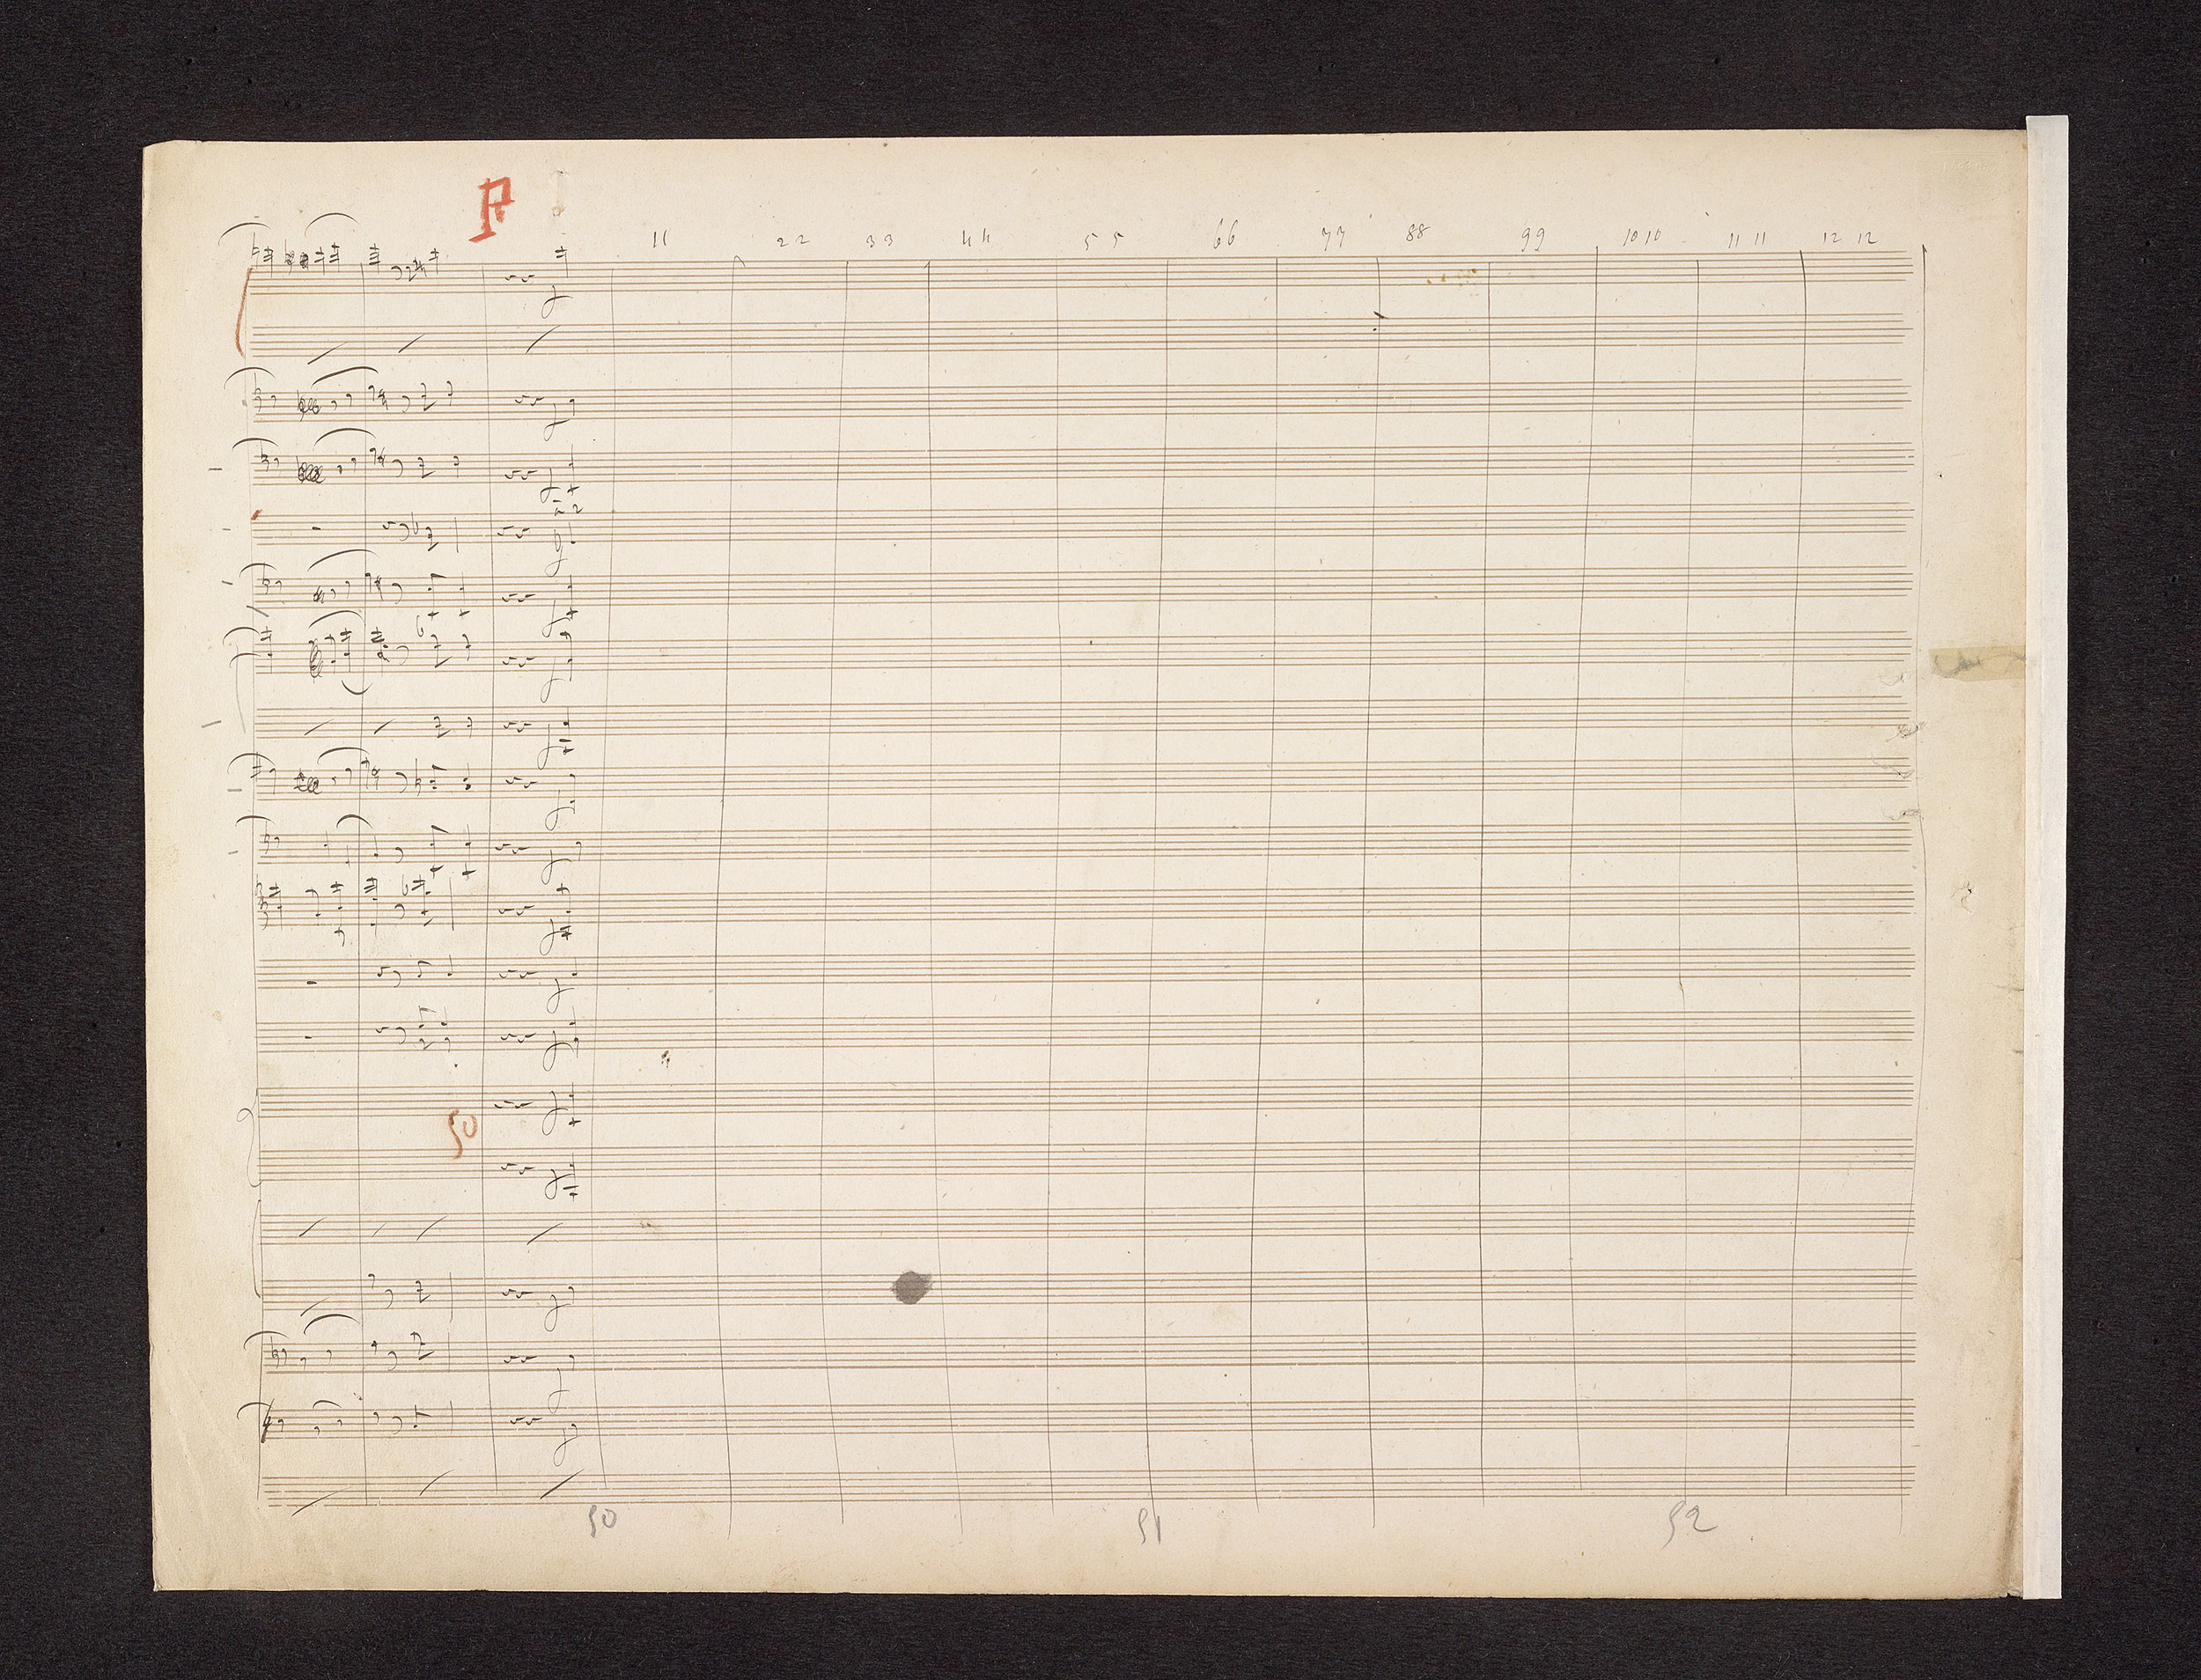 F
11 22 33 44 55 66 77 88 99 1010 11 11 12 12
50
50 51 52